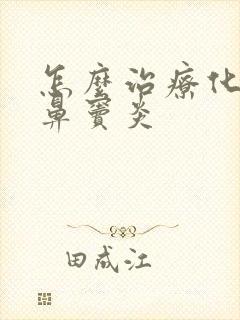 怎麼治療化
鼻竇炎
田成江